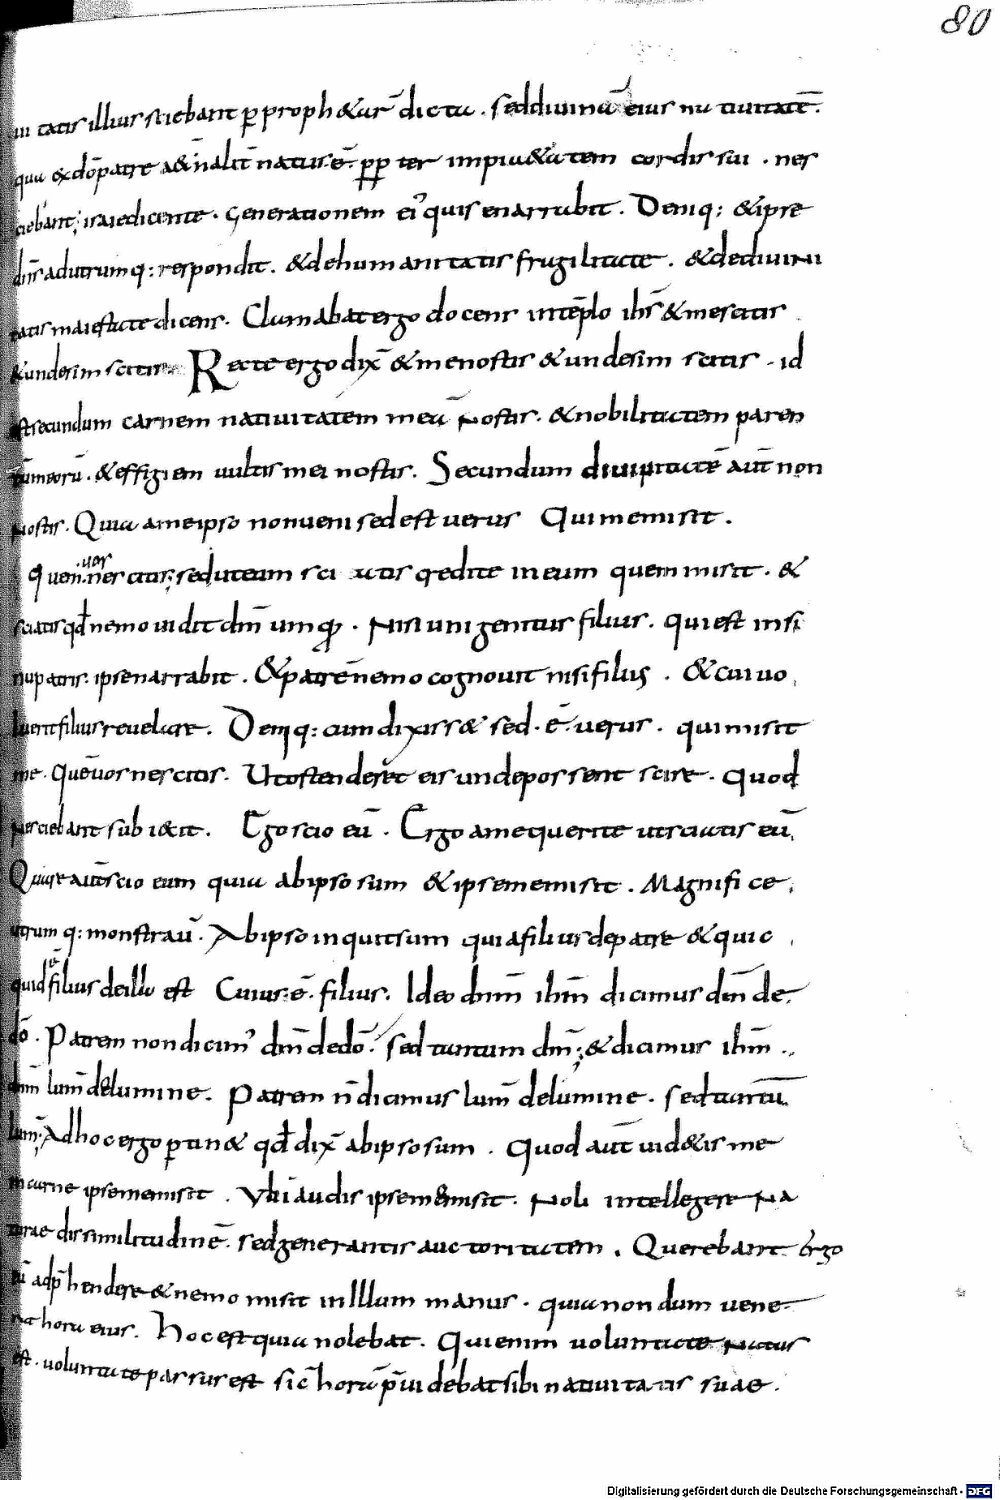 80
ui tatis illius sciebant ꝑ proph&ar̄ dicta . sed diuinā eius na tiuitatē .
qua ex dō patre a&n̄alit̄ natus . ē . ꝓꝑ ter impi&atem cordis sui . nes
ciebant ; isaie dicente . Generationem ei' quis enarrabit . Deniq: & ipse
dn̄s ad utrumq: respondit . & de humanitatis fragilitate . & de diuini
tatis maiestate dicens . Clamabat ergo docens in tēplo ih̄s & me scitis
& unde sim scitis . Recte ergo dix̄ & me nostis & unde sim scitis . id
est secundum carnem natiuitatem meā nostis . & nobilitatem paren
tūmeorū . & effigiem uultus mei nostis . Secundum diuinitatē aut̄ non
nostis . Quia a me ipso non ueni sed est uerus Qui me misit .
Quem uos nescitis ; sed ut eum sci atis credite in eum quem misit . &
sciatis qd̄ nemo uidit dm̄ umqꝫ . Nisi unigenitus filius . qui est in si
nu patris . ipse narrabit . & patrē nemo cognouit nisi filius . & cui uo
luerit filius reuelare . Deniq: cum dixiss& sed . ē . uerus . qui misit
me . Quē uos nescitis . Ut ostenderet eis unde possent scire . Quod
nesciebant subiecit . Ego scio eū . Ergo a me querite ut sciatis eū
Quare aut̄ scio eum quia ab ipso sum & ipse me misit . Magnifi ce
utrumq: monstrau̅ . Ab ipso inquit sum quia filius de patre & quic
quid ē filius de illo est Cuius . ē . filius . Ideo dn̄m ih̄m dicimus dm̄ de
dō . Patrem non dicim' dm̄ de dō . sed tantum dm̄ ; & dicimus ih̄m
dn̄m lum̄ de lumine . Patrem n̄ dicimus lum̄ de lumine . sed tantū
lum̄ ; Ad hoc ergo ꝑtin& qd̄ dix̄ ab ipso sum . Quod aut̄ uid&is me
in carne ipse me misit . Vbi audis ipse me misit . Noli intellegere na
turae dissimilitudinē . sed generantis auctoritatem . Querebant ergo
eū adp̄hendere & nemo misit in illum manus . quia nondum uene
rat hora eius . Hoc est quia nolebat . Qui enim uoluntate natus
est . uoluntate passus est sic & horā p̄uidebat sibi natiuitatis suae .
Digitalisierung gefördert durch die Deutsche Forschungsgemeinschaft - DFG